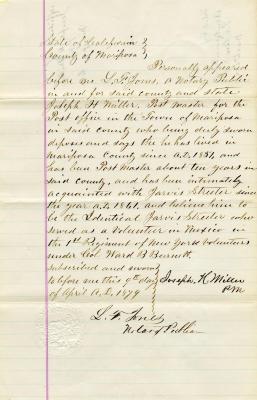 State of California }
County of Mariposa }
Personally appeared
before me L. F. Jones, a Notary Public
in and for said county and state
Joseph H Miller, Post master for the
Post office in the Town of Mariposa
in said county who being duly sworn
deposes and says the he has lived in
Mariposa County since A.D. 1851, and
has been Post Master about ten years in
said county, and has been intimately
acquainted with Jarvis Streeter since
the year A.D. 1861, and believes him to
be the Identical Jarvis Streeter who
served as a Volunteer in Mexico in
the 1st Regiment of New York Volunteers
under Col. Ward B Burnett.
subscribed and sworn
to before me this 9th day
of April A.D. 1879
Joseph. H. Miller
P.M.
L. F. Jones
Notary Public